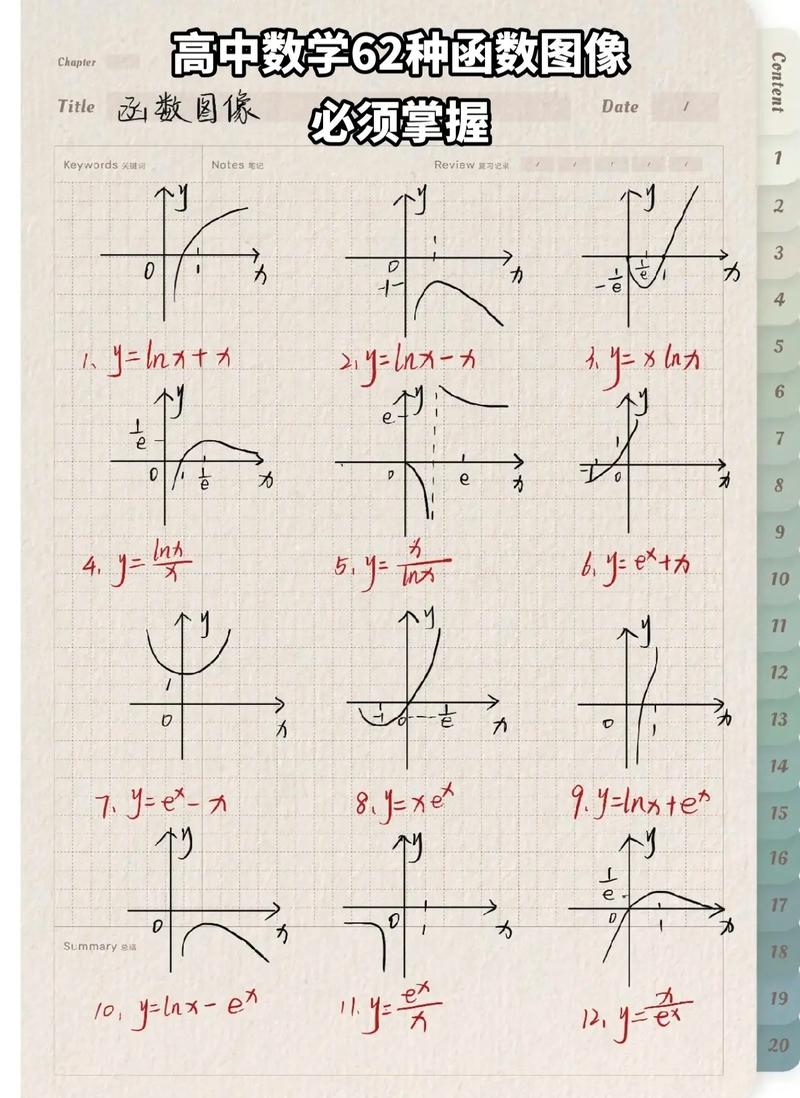 高中数学62种函数图像
必须掌握
Chapter
Title 函数图像 Date /
Content
Keywords 关键词 Notes 笔记 Review 复习记录 / / / / /
y 0 1 x
y 0 -1 x
y -1/e 1/e 1 x
1、y=lnx+x
2、y=lnx-x
3、y=xlnx
y 1/e 0 1 1/e x
y e 0 e x
y 1 -1 0 x
4、y=lnx/x
5、y=x/lnx
6、y=e^x+x
y 1 0 x
y -1 0 -1/e x
y 0 1 x
7、y=e^x-x
8、y=xe^x
9、y=lnx+e^x
y 0 x
y 0 1 x
y 1/e 0 1 x
Summary 总结
10、y=lnx-e^x
11、y=e^x/x
12、y=x/e^x
1
2
3
4
5
6
7
8
9
10
11
12
13
14
15
16
17
18
19
20